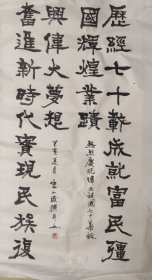 歷經七十載成就富民疆
國輝煌業蹟
熱烈慶祝偉大祖國七十華誕
奮進新時代實現民族復
興偉大夢想